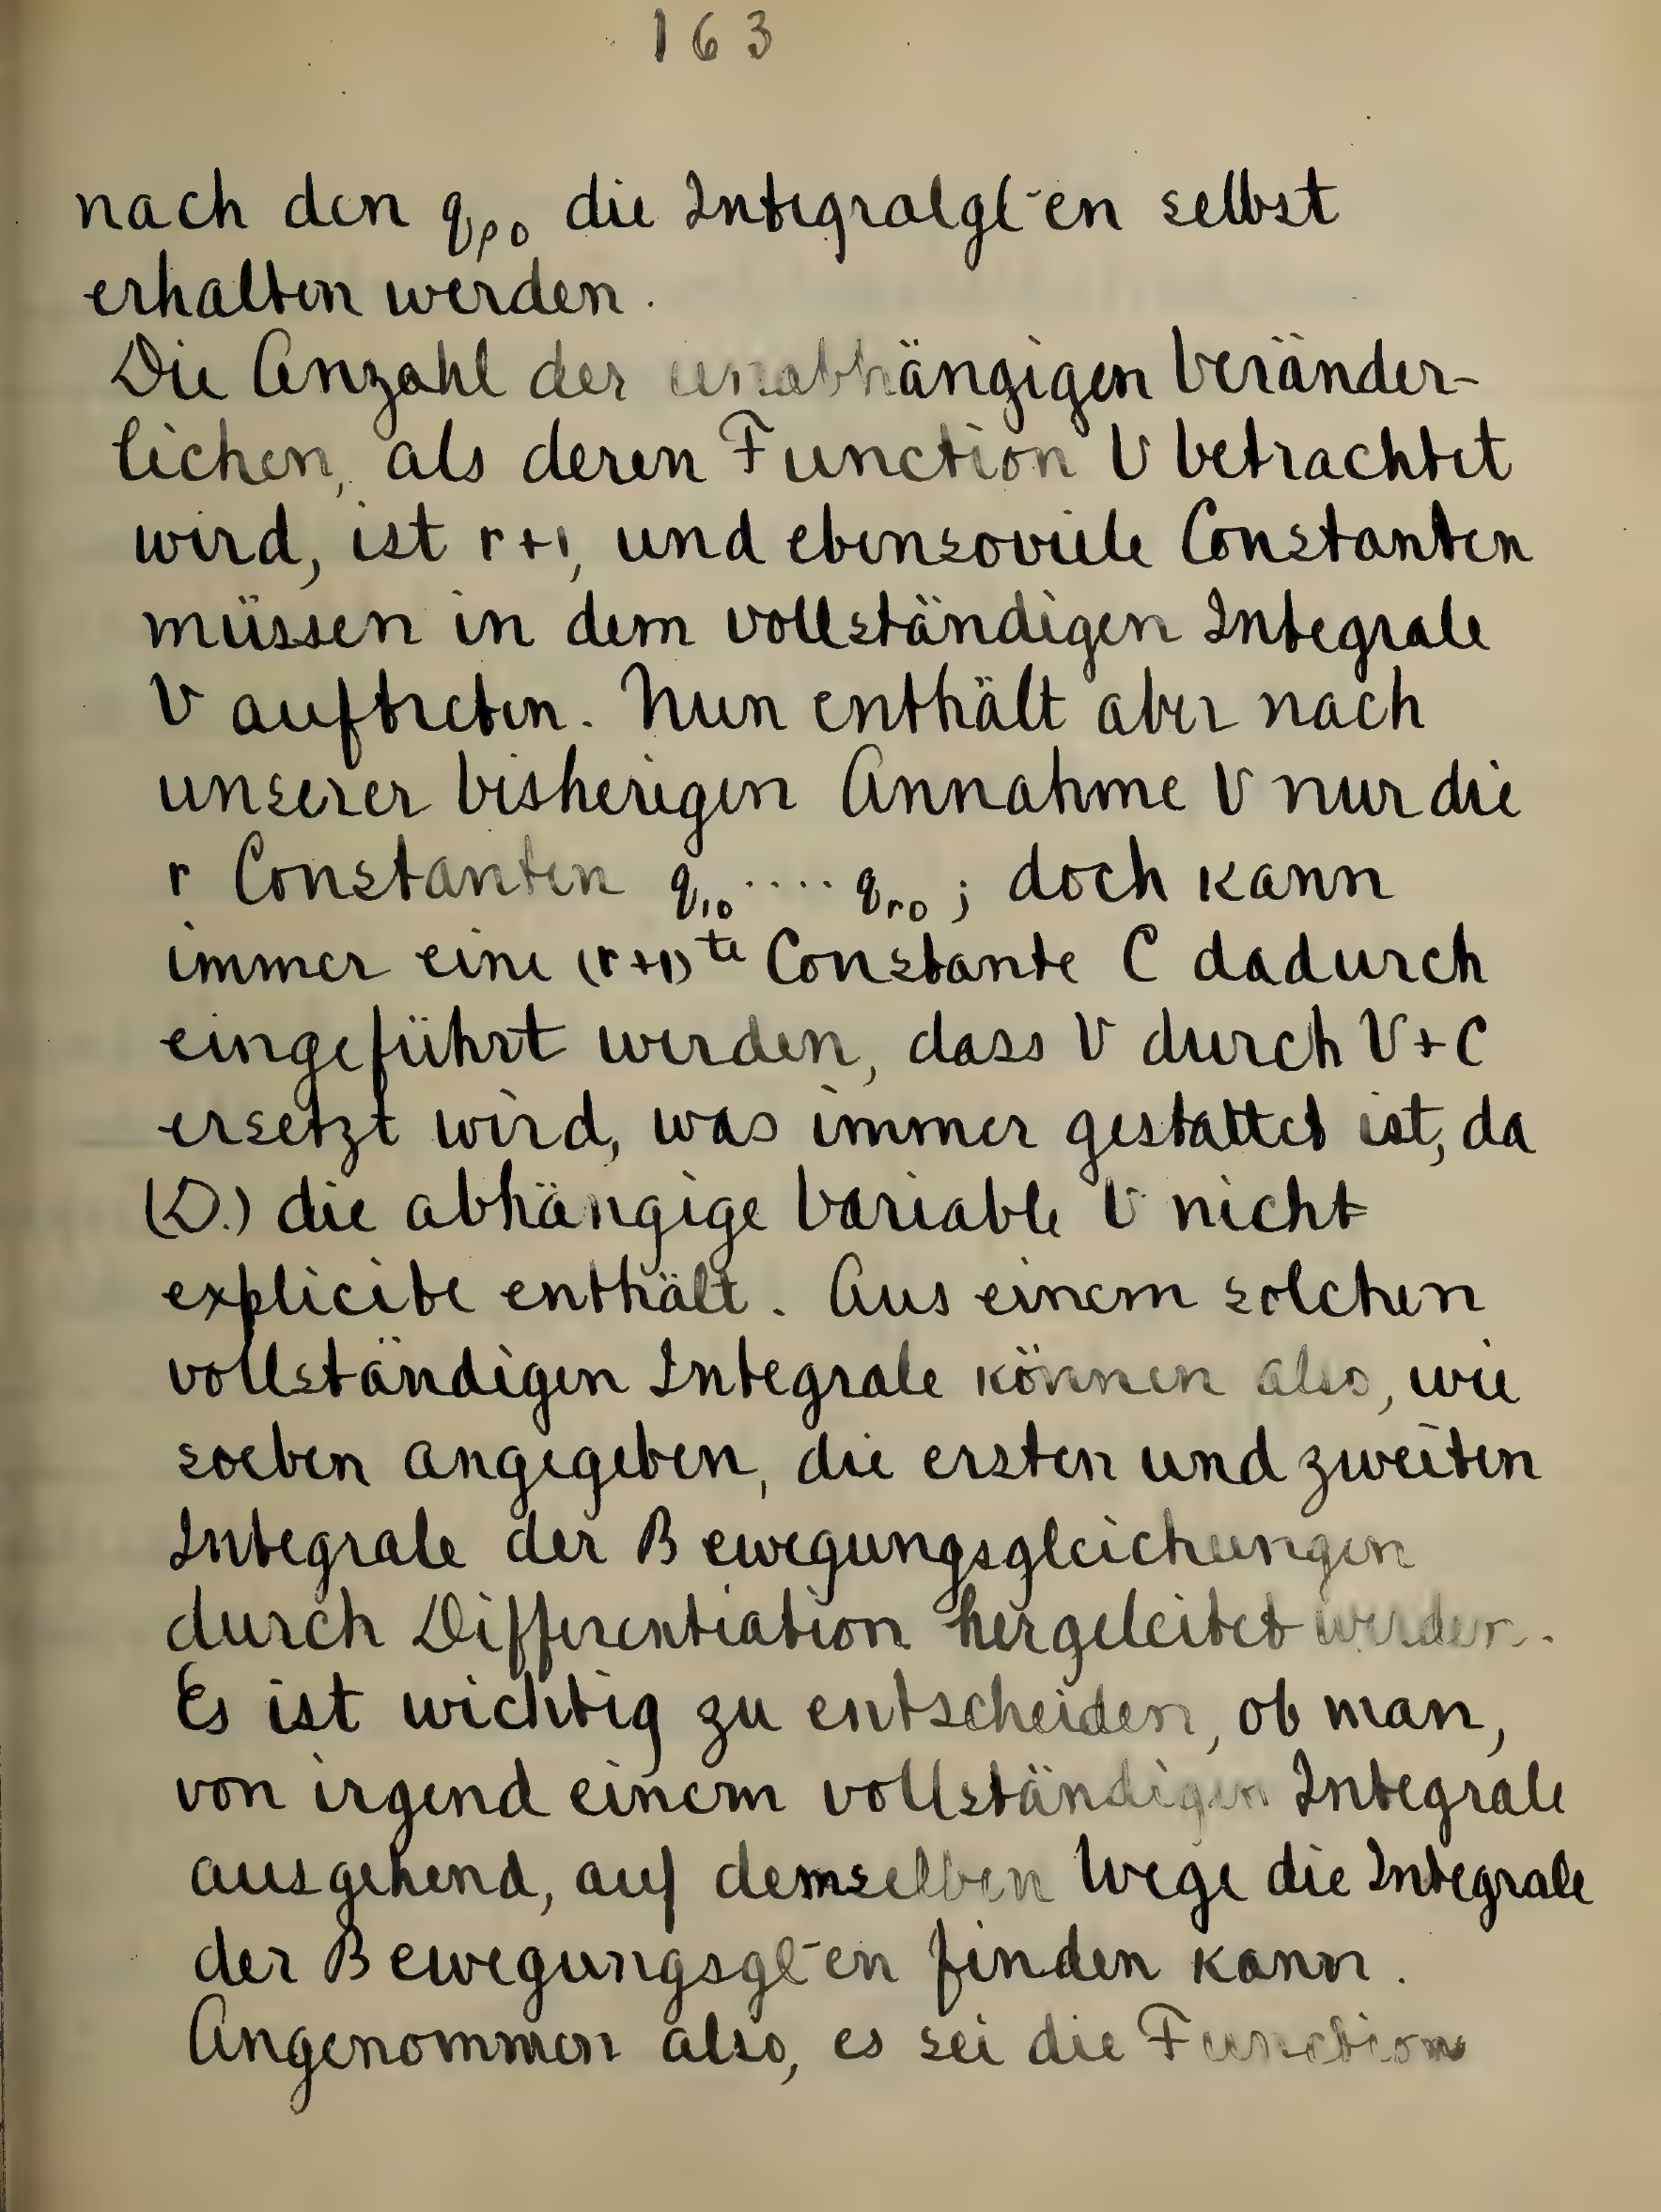 163
nach den q_ρ0 die Integralgl-en selbst
erhalten werden.
Die Anzahl der unabhängigen Veränder-
lichen, als deren Function V betrachtet
wird, ist r+1, und ebensoviele Constanten
müssen in dem vollständigen Integrale
V auftreten. Nun enthält aber nach
unserer bisherigen Annahme V nur die
r Constanten q_10 .... q_r0 ; doch kann
immer eine (r+1)te Constante C dadurch
eingeführt werden, dass V durch V+C
ersetzt wird, was immer gestattet ist, da
(D.) die abhängige Variable V nicht
explicite enthält. Aus einem solchen
vollständigen Integrale können also, wie
soeben angegeben, die ersten und zweiten
Integrale der Bewegungsgleichungen
durch Differentiation hergeleitet werden.
Es ist wichtig zu entscheiden, ob man,
von irgend einem vollständigen Integrale
ausgehend, auf demselben Wege die Integrale
der Bewegungsgl-en finden kann.
Angenommen also, es sei die Function